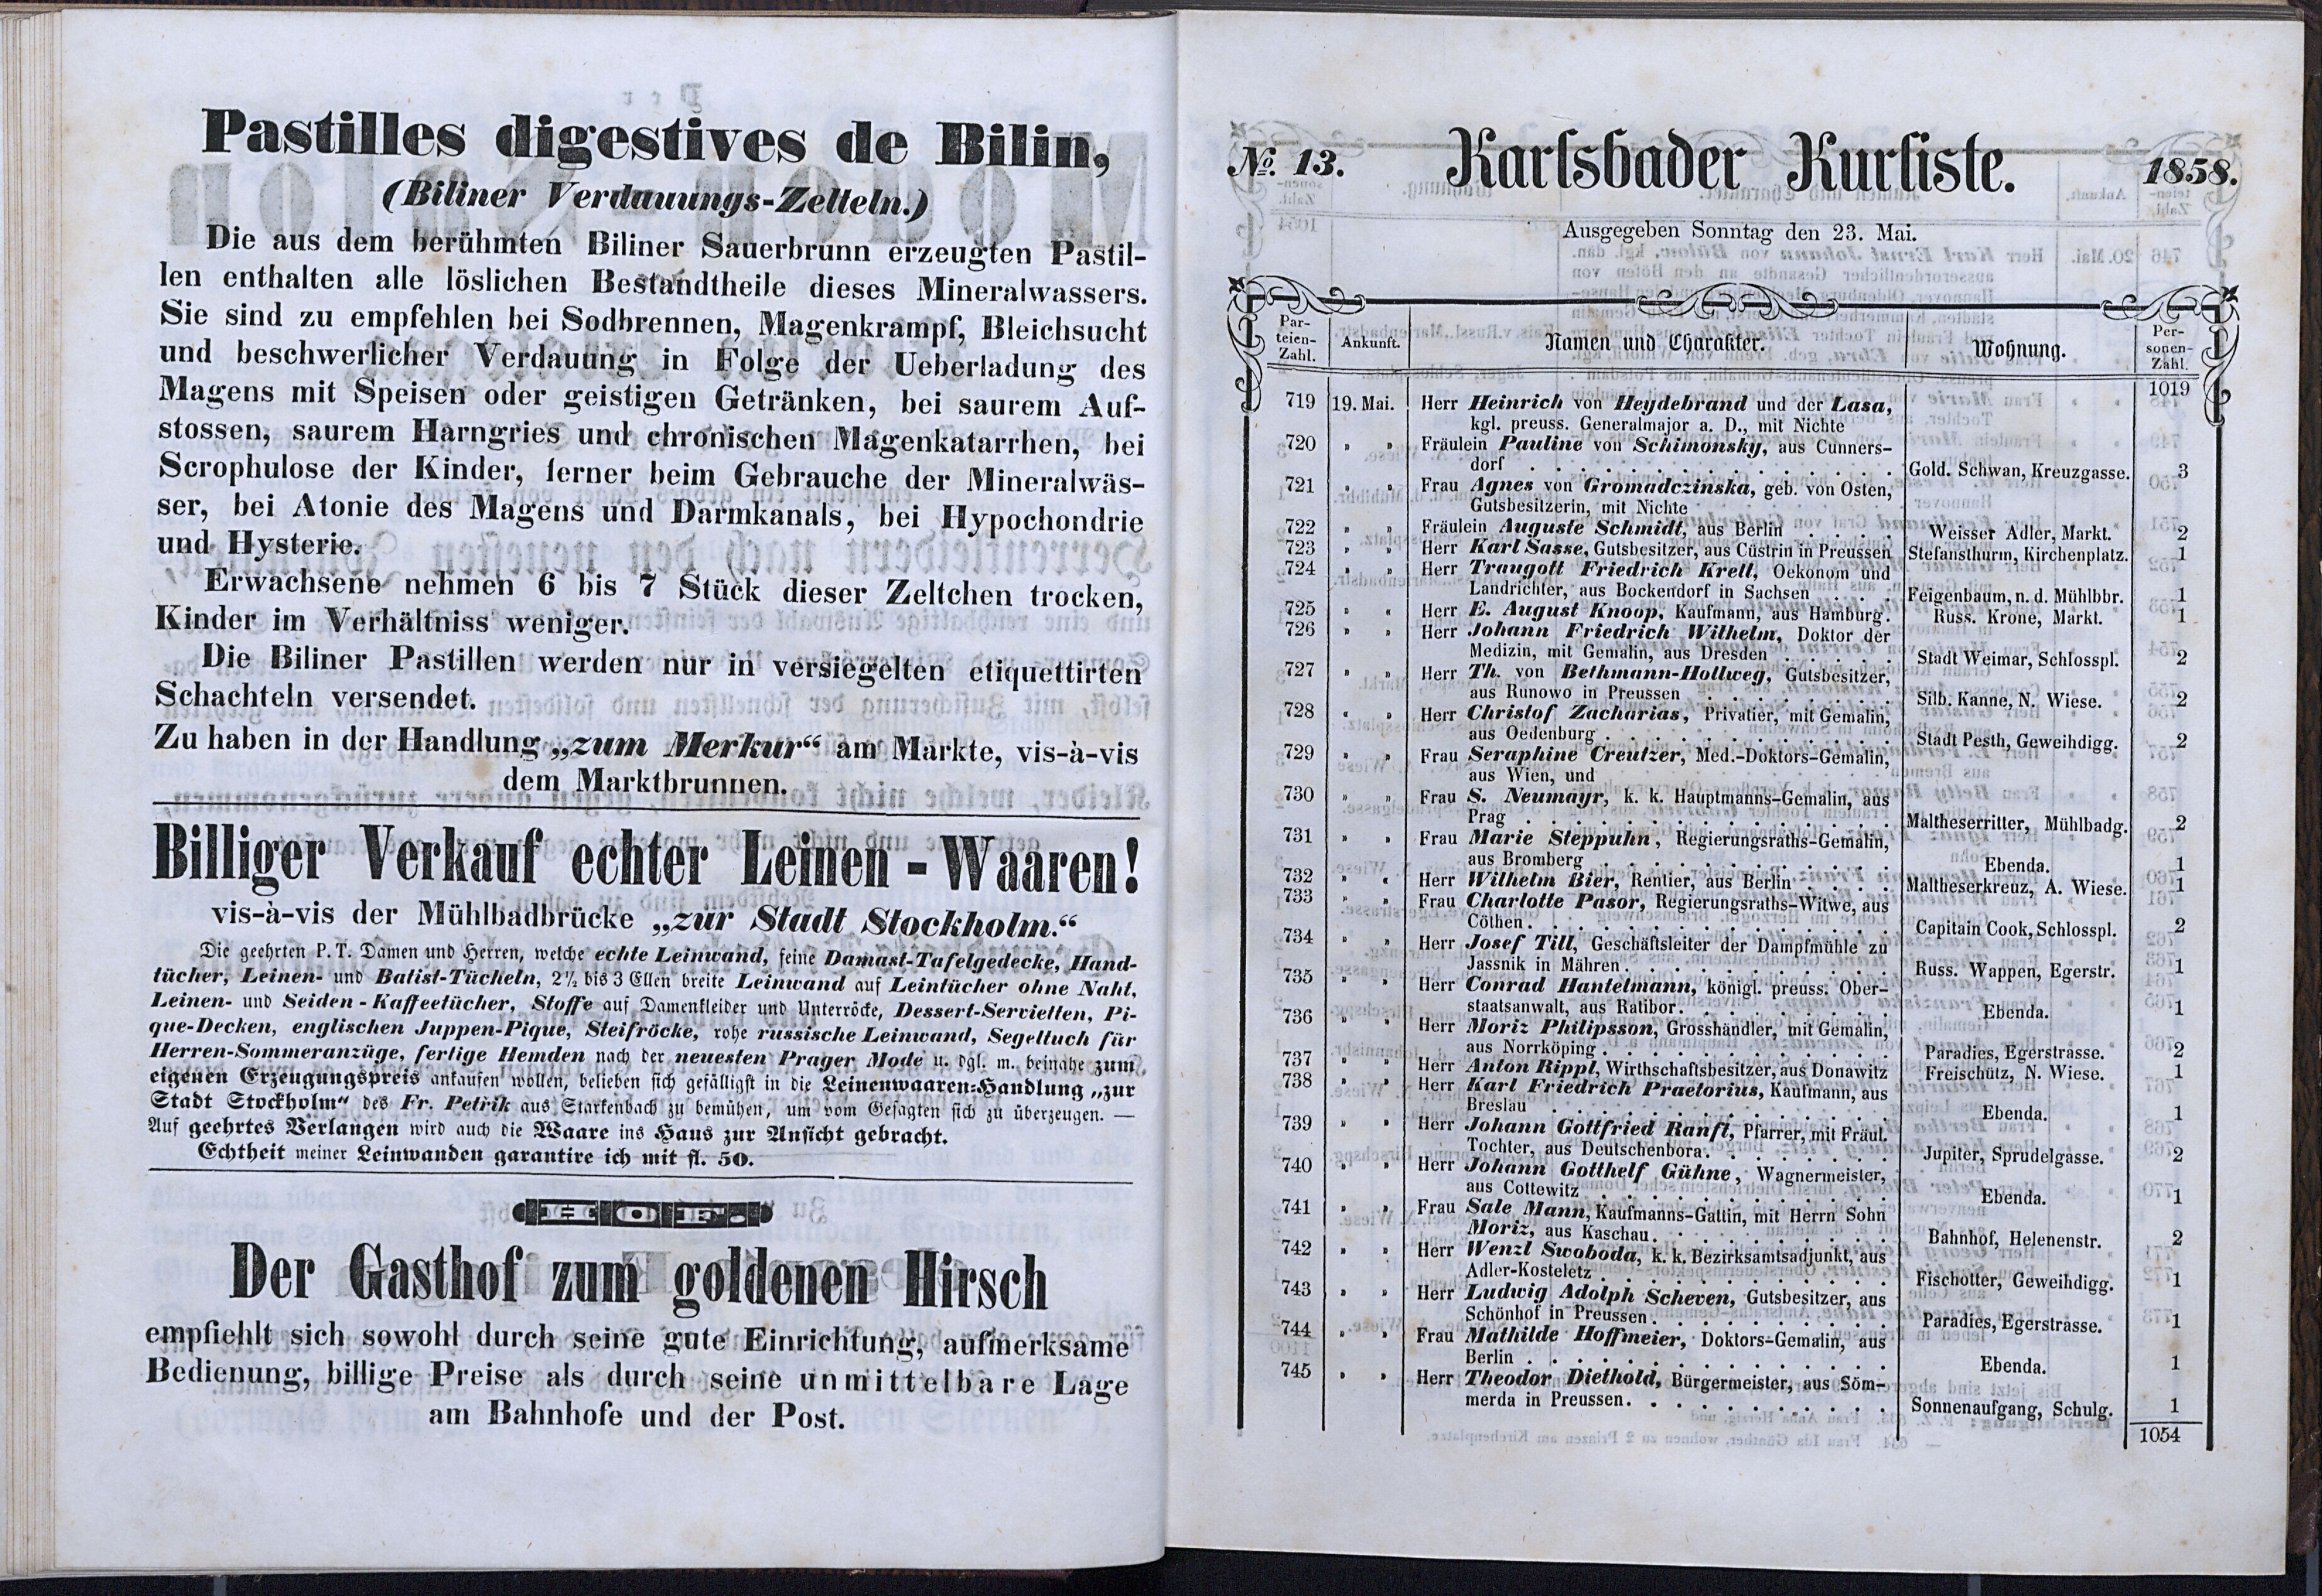 Pastilles digestives de Bilin,
(Biliner Verdauungs-Zelteln.)
Die aus dem berühmten Biliner Sauerbrunn erzeugten Pastil-
len enthalten alle löslichen Bestandtheile dieses Mineralwassers.
Sie sind zu empfehlen bei Sodbrennen, Magenkrampf, Bleichsucht
und beschwerlicher Verdauung in Folge der Ueberladung des
Magens mit Speisen oder geistigen Getränken, bei saurem Auf-
stossen, saurem Harngries und chronischen Magenkatarrhen, bei
Scrophulose der Kinder, ferner beim Gebrauche der Mineralwäs-
ser, bei Atonie des Magens und Darmkanals, bei Hypochondrie
und Hysterie.
Erwachsene nehmen 6 bis 7 Stück dieser Zeltchen trocken,
Kinder im Verhältniss weniger.
Die Biliner Pastillen werden nur in versiegelten etiquettirten
Schachteln versendet.
Zu haben in der Handlung „zum Merkur“ am Markte, vis-à-vis
dem Marktbrunnen.
Billiger Verkauf echter Leinen - Waaren!
vis-à-vis der Mühlbadbrücke „zur Stadt Stockholm.“
Die geehrten P. T. Damen und Herren, welche echte Leinwand, feine Damast-Tafelgedecke, Hand-
tücher, Leinen- und Batist-Tücheln, 2½ bis 3 Ellen breite Leinwand auf Leintücher ohne Naht,
Leinen- und Seiden-Kaffeetücher, Stoffe auf Damenkleider und Unterröcke, Dessert-Servietten, Pi-
que-Decken, englischen Juppen-Pique, Steifröcke, rohe russische Leinwand, Segeltuch für
Herren-Sommeranzüge, fertige Hemden nach der neuesten Prager Mode u. dgl. m. beinahe zum
eigenen Erzeugungspreis ankaufen wollen, belieben sich gefälligst in die Leinenwaaren-Handlung „zur
Stadt Stockholm“ des Fr. Petřik aus Starkenbach zu bemühen, um vom Gesagten sich zu überzeugen. —
Auf geehrtes Verlangen wird auch die Waare ins Haus zur Ansicht gebracht.
Echtheit meiner Leinwanden garantire ich mit fl. 50.
HOF.
Der Gasthof zum goldenen Hirsch
empfiehlt sich sowohl durch seine gute Einrichtung, aufmerksame
Bedienung, billige Preise als durch seine unmittelbare Lage
am Bahnhofe und der Post.
No. 13. Karlsbader Kurliste. 1858.
Ausgegeben Sonntag den 23. Mai.
Par-teien-Zahl. Ankunft. Namen und Charakter. Wohnung. Per-sonen-Zahl.
1019
719 19. Mai. Herr Heinrich von Heydebrand und der Lasa,
kgl. preuss. Generalmajor a. D., mit Nichte
720 „ „ Fräulein Pauline von Schimonsky, aus Cunners-
dorf . . . Gold. Schwan, Kreuzgasse. 3
721 „ „ Frau Agnes von Gromadczinska, geb. von Osten,
Gutsbesitzerin, mit Nichte
722 „ „ Fräulein Auguste Schmidt, aus Berlin . . . Weisser Adler, Markt. 2
723 „ „ Herr Karl Sasse, Gutsbesitzer, aus Cüstrin in Preussen Stefansthurm, Kirchenplatz. 1
724 „ „ Herr Traugott Friedrich Krell, Oekonom und
Landrichter, aus Bockendorf in Sachsen . . . Feigenbaum, n. d. Mühlbbr. 1
725 „ „ Herr E. August Knoop, Kaufmann, aus Hamburg. Russ. Krone, Markt. 1
726 „ „ Herr Johann Friedrich Wilhelm, Doktor der
Medizin, mit Gemalin, aus Dresden . . . Stadt Weimar, Schlosspl. 2
727 „ „ Herr Th. von Bethmann-Hollweg, Gutsbesitzer,
aus Runowo in Preussen . . . Silb. Kanne, N. Wiese. 2
728 „ „ Herr Christof Zacharias, Privatier, mit Gemalin,
aus Oedenburg . . . Stadt Pesth, Geweihdigg. 2
729 „ „ Frau Seraphine Creutzer, Med.-Doktors-Gemalin,
aus Wien, und
730 „ „ Frau S. Neumayr, k. k. Hauptmanns-Gemalin, aus
Prag . . . Maltheserritter, Mühlbadg. 2
731 „ „ Frau Marie Steppuhn, Regierungsraths-Gemalin,
aus Bromberg . . . Ebenda. 1
732 „ „ Herr Wilhelm Bier, Rentier, aus Berlin . . . Maltheserkreuz, A. Wiese. 1
733 „ „ Frau Charlotte Pasor, Regierungsraths-Witwe, aus
Cöthen . . . Capitain Cook, Schlosspl. 2
734 „ „ Herr Josef Till, Geschäftsleiter der Dampfmühle zu
Jassnik in Mähren . . . Russ. Wappen, Egerstr. 1
735 „ „ Herr Conrad Hantelmann, königl. preuss. Ober-
staatsanwalt, aus Ratibor . . . Ebenda. 1
736 „ „ Herr Moriz Philipsson, Grosshändler, mit Gemalin,
aus Norrköping . . . Paradies, Egerstrasse. 2
737 „ „ Herr Anton Rippl, Wirthschaftsbesitzer, aus Donawitz Freischütz, N. Wiese. 1
738 „ „ Herr Karl Friedrich Praetorius, Kaufmann, aus
Breslau . . . Ebenda. 1
739 „ „ Herr Johann Gottfried Ranft, Pfarrer, mit Fräul.
Tochter, aus Deutschenbora . . . Jupiter, Sprudelgasse. 2
740 „ „ Herr Johann Gotthelf Gühne, Wagnermeister,
aus Cottewitz . . . Ebenda. 1
741 „ „ Frau Sale Mann, Kaufmanns-Gattin, mit Herrn Sohn
Moriz, aus Kaschau . . . Bahnhof, Helenenstr. 2
742 „ „ Herr Wenzl Swoboda, k. k. Bezirksamtsadjunkt, aus
Adler-Kosteletz . . . Fischotter, Geweihdigg. 1
743 „ „ Herr Ludwig Adolph Scheven, Gutsbesitzer, aus
Schönhof in Preussen . . . Paradies, Egerstrasse. 1
744 „ „ Frau Mathilde Hoffmeier, Doktors-Gemalin, aus
Berlin . . . Ebenda. 1
745 „ „ Herr Theodor Diethold, Bürgermeister, aus Söm-
merda in Preussen . . . Sonnenaufgang, Schulg. 1
1054